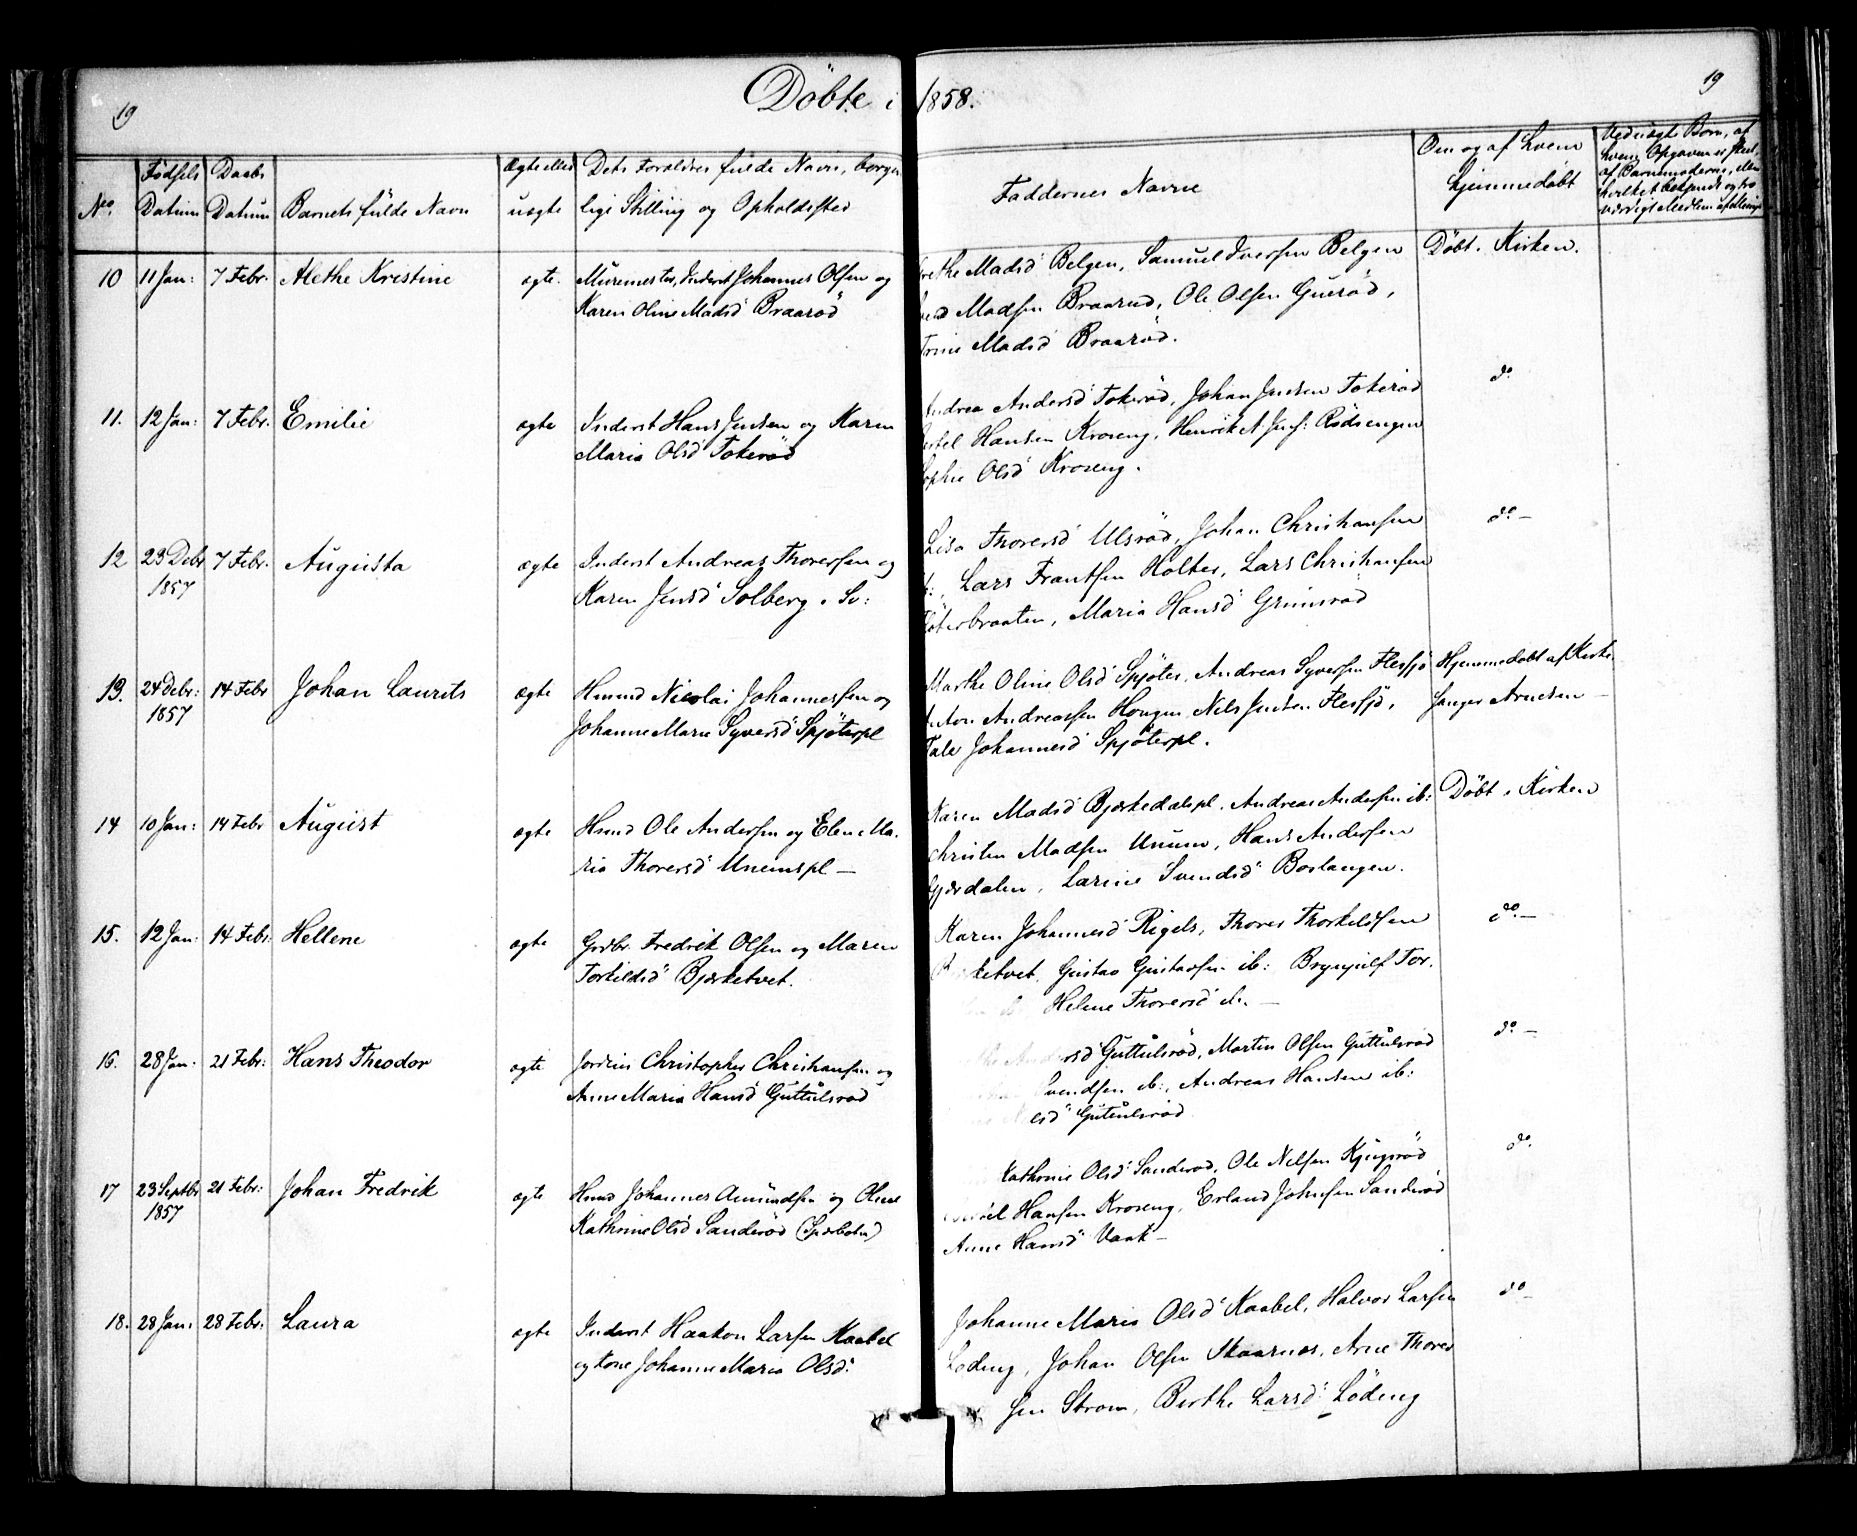 19
Döbte i 1858.
19
No.
Fødsels Datum
Daabs Datum
Barnets fulde Navn
Ægte eller uægte
Dets Forældres fulde Navn, borger
lige Stilling og Opholdssted
Faddernes Navne
Om og af hvem
hjemmedøbt
10 11 Jan: 7 Febr. Alethe Kristine ægte. Muremester, Inderst Johannes Olsen og
Karen Oline Madsd Braarød
Madsd Belgen, Samuel Iversen Belgen
Madsen Braarud, Ole Olsen
Trine Madsd Braarød.
Døbt i Kirken.
11. 12 Jan: 7 Febr. Emilie ægte Inderst Hans Jensen og Karen
Maria Olsd Tokerød
Andrea Andersd Tokerød, Johan Jensen Tokerød
Hansen Kroseng, Henrik A Jens: Rødsengen
Sophie Olsd Kroseng.
do.
12 23 Debr 7 Febr. Augusta ægte Inderst Andreas Thoresen og
1857 Karen Jensd Solberg i Sv:
Lisa Thoresd Ulsrød, Johan Christiansen
Lars Frantsen Holter, Lars Christiansen
Maria Hansd Grimsrød
do. —
13. 24 Debr: 14 Febr Johan Laurits ægte Husmd Nicolai Johannessen og
1857 Johanne Marie Syversd Spjøterpl
Marthe Oline Olsd Spjøter, Andreas Syversen Flessjø
Anton Andreassen Hougen, Nils Jensen Flessjø,
Tale Johannesd Spjøterpl.
Hjemmedøbt af Kirke
sanger Arnesen —
14 10 Jan: 14 Febr August ægte Husmd Ole Andersen og Elen Ma-
ria Thoresd Unemspl —
Karen Madsd Bjærkedalspl. Andreas Andersen ib:
Christen Madsen Unum, Hans Andersen
Gjærdalen, Larine Svendsd Boslangen.
Døbt i Kirken
15. 12 Jan: 14 Febr: Hellene ægte Grdbr. Fredrik Olsen og Maren
Torkildsd Bjærketvet.
Karen Johannesd Rigels, Thores Thorkeldsen
ketvet, Gustav Gustavsen ib: Brynjulf Tor.
Helene Thoresd ib. —
do. —
16. 28 Jan: 21 Febr: Hans Theodor ægte Christopher Christiansen og
Anne Maria Hansd Guttulsrød
rsd Guttulsrød, Martin Olsen Guttulsrød
Svendsen ib:, Andreas Hansen ib:
esd Guttulsrød
do —
17 23 Septbr 21 Febr: Johan Fredrik ægte Husmd Johannes Amundsen og Oline
1857 Kathrine Olsd Sanderød (Spærbotn)
Kathrine Olsd Sanderød, Ole Nilsen
Hansen Kroseng, Erland Johnsen Sanderød
Anne Hansd Vaak —
do.
18. 28 Jan: 28 Febr: Laura ægte Inderst Haakon Larsen Kaabel
og Kone Johanne Maria Olsd:
Johanne Maria Olsd Kaabel, Halvor Larsen
Løding, Johan Olsen Skaarnæs, Arne Thores
sen Strøm, Berthe Larsd Løding
do